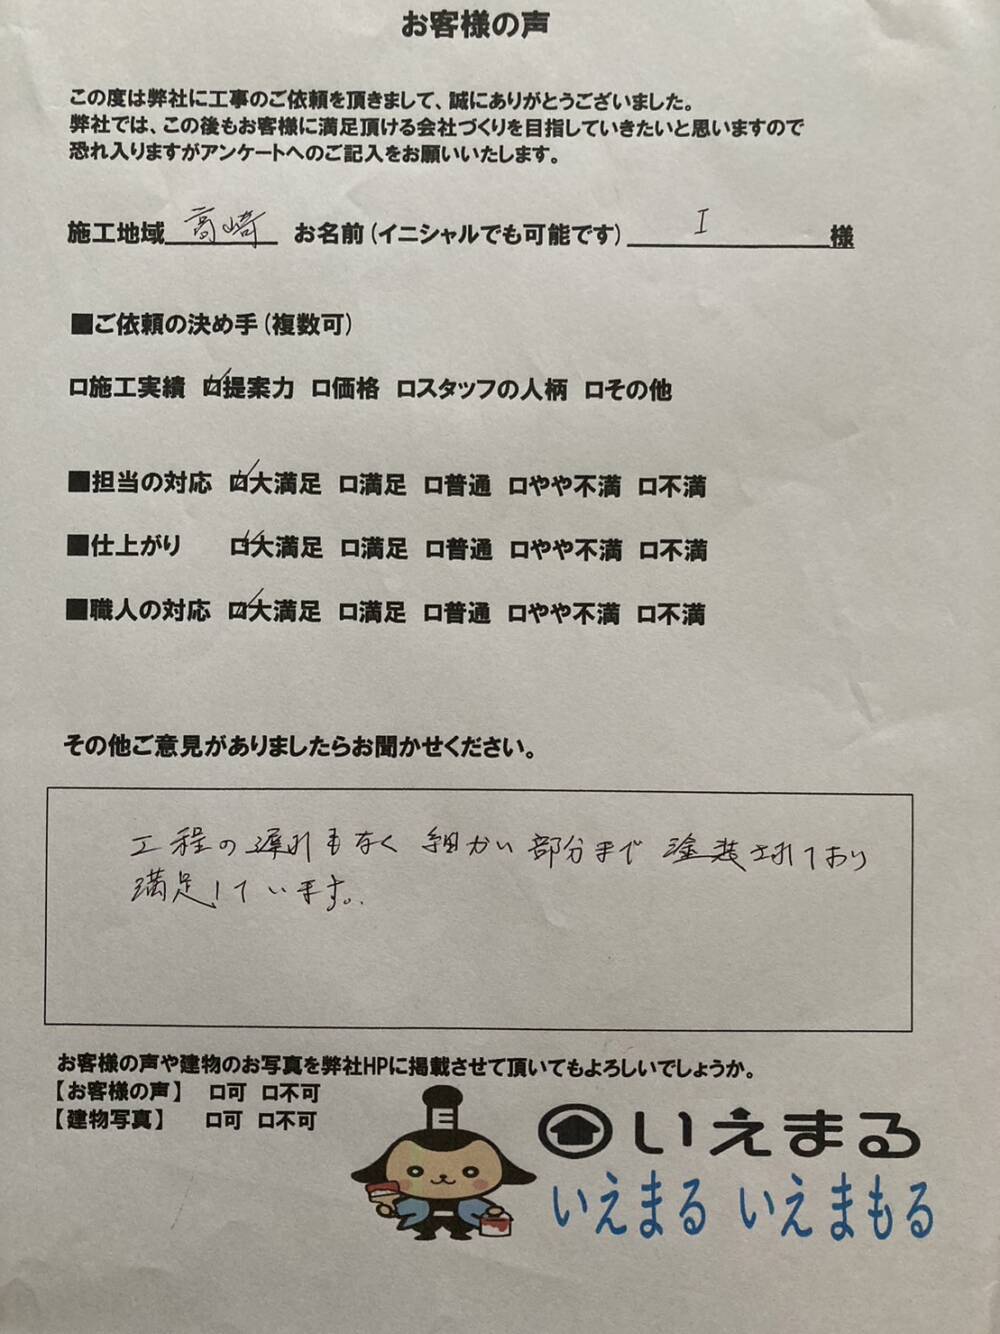 お客様の声
この度は弊社に工事のご依頼を頂きまして、誠にありがとうございました。
弊社では、この後もお客様に満足頂ける会社づくりを目指していきたいと思いますので
恐れ入りますがアンケートへのご記入をお願いいたします。
施工地域 高崎 お名前(イニシャルでも可能です) I 様
■ご依頼の決め手(複数可)
□施工実績 ☑提案力 □価格 □スタッフの人柄 □その他
■担当の対応 ☑大満足 □満足 □普通 □やや不満 □不満
■仕上がり ☑大満足 □満足 □普通 □やや不満 □不満
■職人の対応 ☑大満足 □満足 □普通 □やや不満 □不満
その他ご意見がありましたらお聞かせください。
工程の遅れもなく細かい部分まで塗装されており
満足しています。
お客様の声や建物のお写真を弊社HPに掲載させて頂いてもよろしいでしょうか。
【お客様の声】 □可 □不可
【建物写真】 □可 □不可
いえまる
いえまる いえまもる